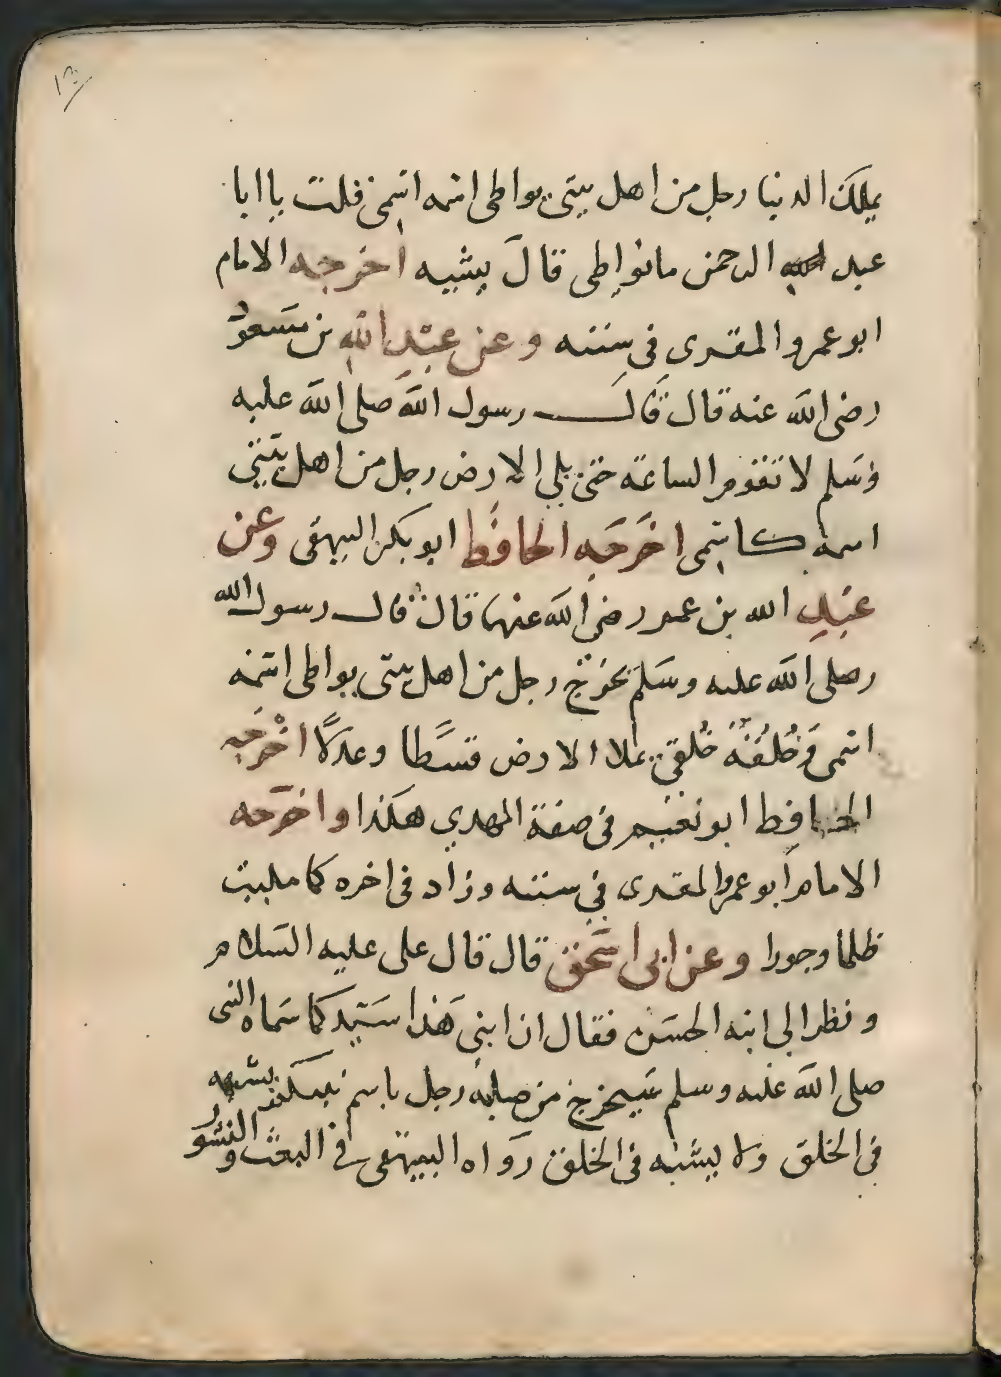 ١٣
يملك الدنيا رجل من اهل بيتي يواطى اسمه اسمى فلت يا ابا
عبد الرحمن ما يواطى قال يشبه اخرجه الامام
ابو عمرو المقرى فى سننه وعن عبد الله بن مسعود
رضى الله عنه قال قال رسول الله صلى الله عليه
وسلم لا تقوم الساعة حتى يلي الارض رجل من اهل بيتي
اسمه كاسمى اخرجه الحافظ ابو بكر البيهقى وعن
عبد الله بن عمر رضى الله عنهما قال قال رسول الله
صلى الله عليه وسلم يخرج رجل من اهل بيتى يواطى اسمه
اسمى وخلقه خلقي يملا الارض قسطا وعدلا اخرجه
الحافظ ابو نعيم فى صفة المهدي هكذا واخرجه
الامام ابو عمرو المقرى في سننه وزاد فى اخره كما مليت
ظلما وجورا وعن ابى اسحق قال قال على عليه السلام
ونظر الى ابنه الحسن فقال ان ابنى هذا سيد كما سماه النبى
صلى الله عليه وسلم سيخرج من صلبه رجل باسم نبيكم يشبهه
فى الخلق ولا يشبه فى الخلق رواه البيهقى في البعث والنشور